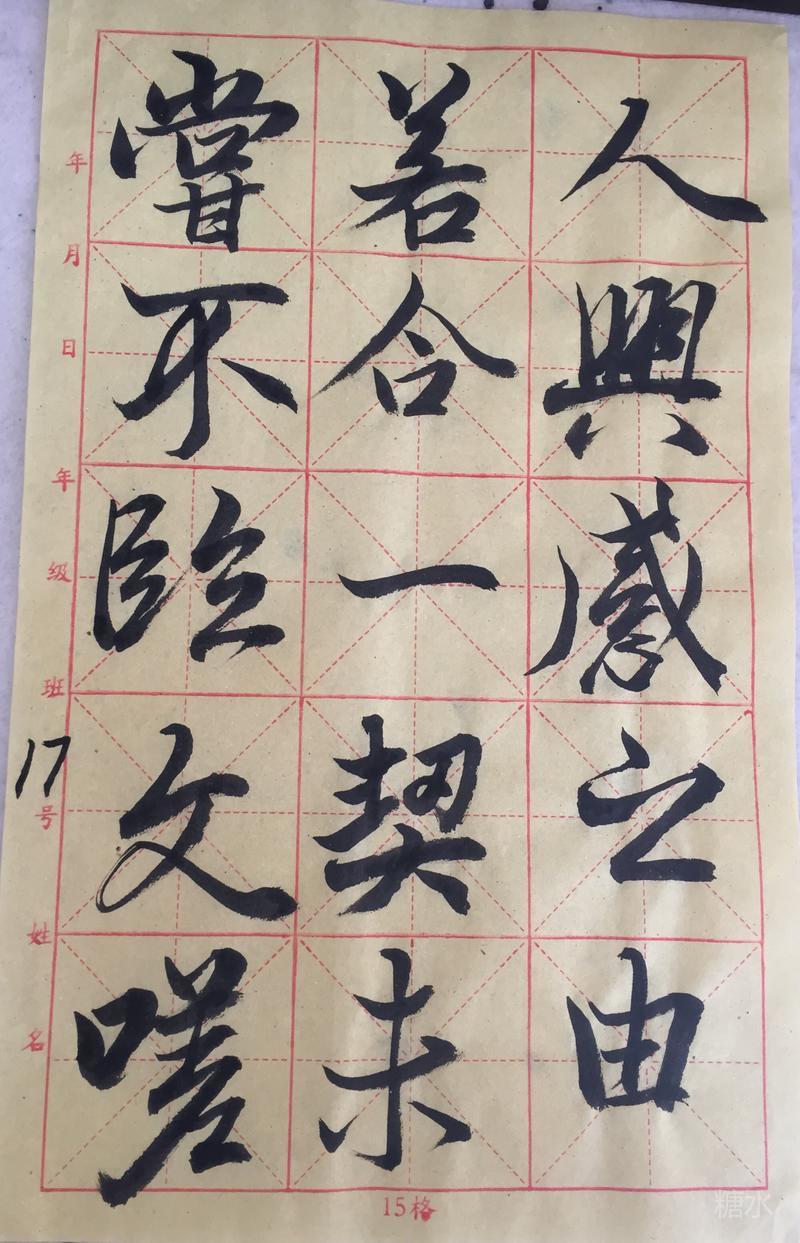 人興感之由
若合一契未
嘗不臨文嗟
年
月
日
年
级
班
17
号
姓
名
15格
糖水